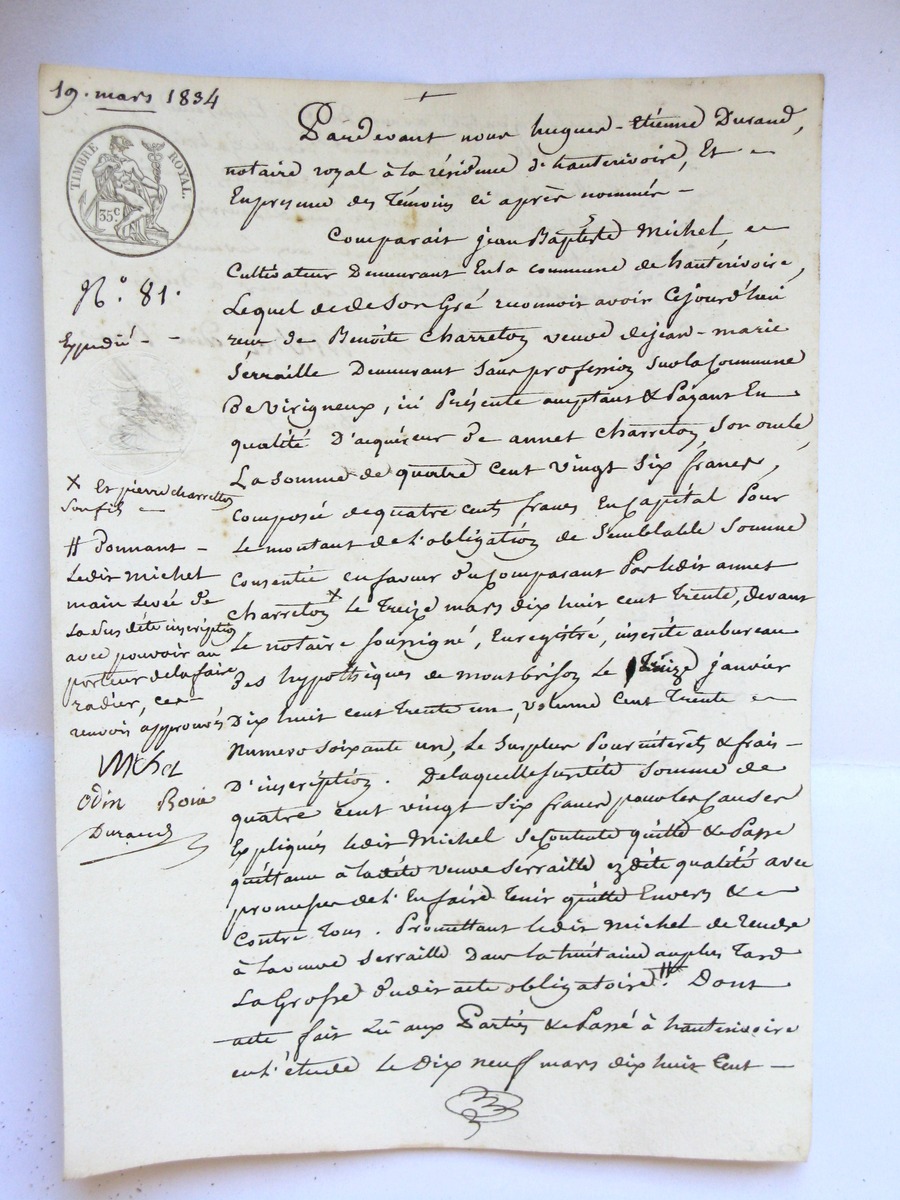 19. mars 1834
TIMBRE ROYAL.
35 c.
N.° 81.
Expedié - -
Pardevant nous hugues-étienne Durand,
notaire royal à la résidence d'hauterivoire, Et
En presence des Témoins ci après nommés -
Comparait jean Baptiste Michel,
Cultivateur Demeurant En la commune de hauterivoire,
Lequel de de son Gré reconnoit avoir Cejourd'hui
reçu de Benoîte Charreton veuve de jean-marie
Serraille Demeurant Sans profession sur la Commune
De Virigneux, ici Présente comptant & Payant En
qualité D'acquéreur de annet Charreton, son oncle,
La somme de quatre cent vingt six francs,
Composée de quatre cents francs En Capital Pour
Le montant de l'obligation de Semblable Somme
Consentie en faveur du Comparant Par ledit annet
Charreton X Le Treize mars dix huit cent trente, devant
Le notaire soussigné, Enregistré, inscrite au bureau
des hypothèques de montbrison Le Treize janvier
Dix huit cent trente un, volume cent Trente
Numero soixante un, Le Surplus Pour intérêts & frais -
D'inscription. De laquelle susdite somme de
quatre cent vingt six francs pour les Causes
Expliquées ledit Michel se Contente quitte & Passe
quittance à ladite veuve Serraille ez dite qualité avec
promesse de l'En faire Tenir quitte Envers &
Contre Tous. Promettant ledit Michel de Rendre
à la veuve Serraille Dans la huitaine au plus Tard
La Grosse du dit acte obligatoire #. Dont
acte fait Lu aux Parties & Passé à hauterivoire
en l'étude Le Dix neuf mars dix huit Cent -
X Et pierre charreton
Son fils
# Donnant -
Ledit Michel
main Levée de
La Susdite inscription
avec pouvoir au
porteur de la faire
radier, ces
renvois approuvés
Michel
Odin Boin
Durand